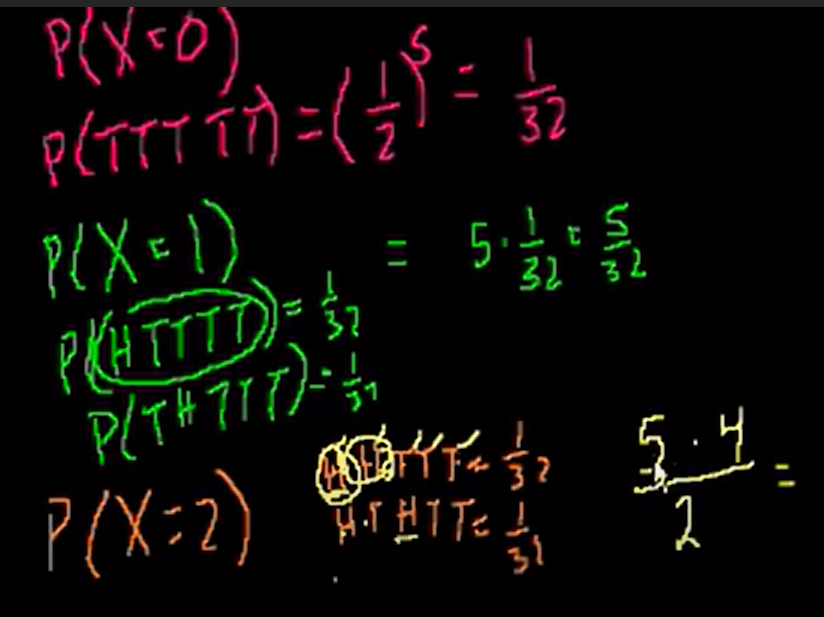 P(X=0)
P(TTTTT) = (1/2)^5 = 1/32
P(X=1) = 5·1/32 = 5/32
P(HTTTT) = 1/32
P(THTTT) = 1/32
HHTTT = 1/32
P(X=2)
HTHTT = 1/32
5·4/2 =